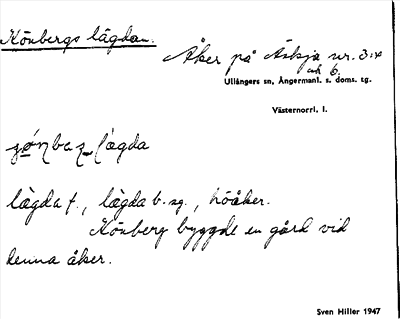 Könbergs lägdan.
Åker på Äskja nr. 3:4
och 6.
Ullångers sn, Ångermanl. s. doms. tg.
Västernorrl. l.
lägda
lägda f., lägda b. sg., höåker.
Könberg byggde en gård vid
denna åker.
Sven Hiller 1947